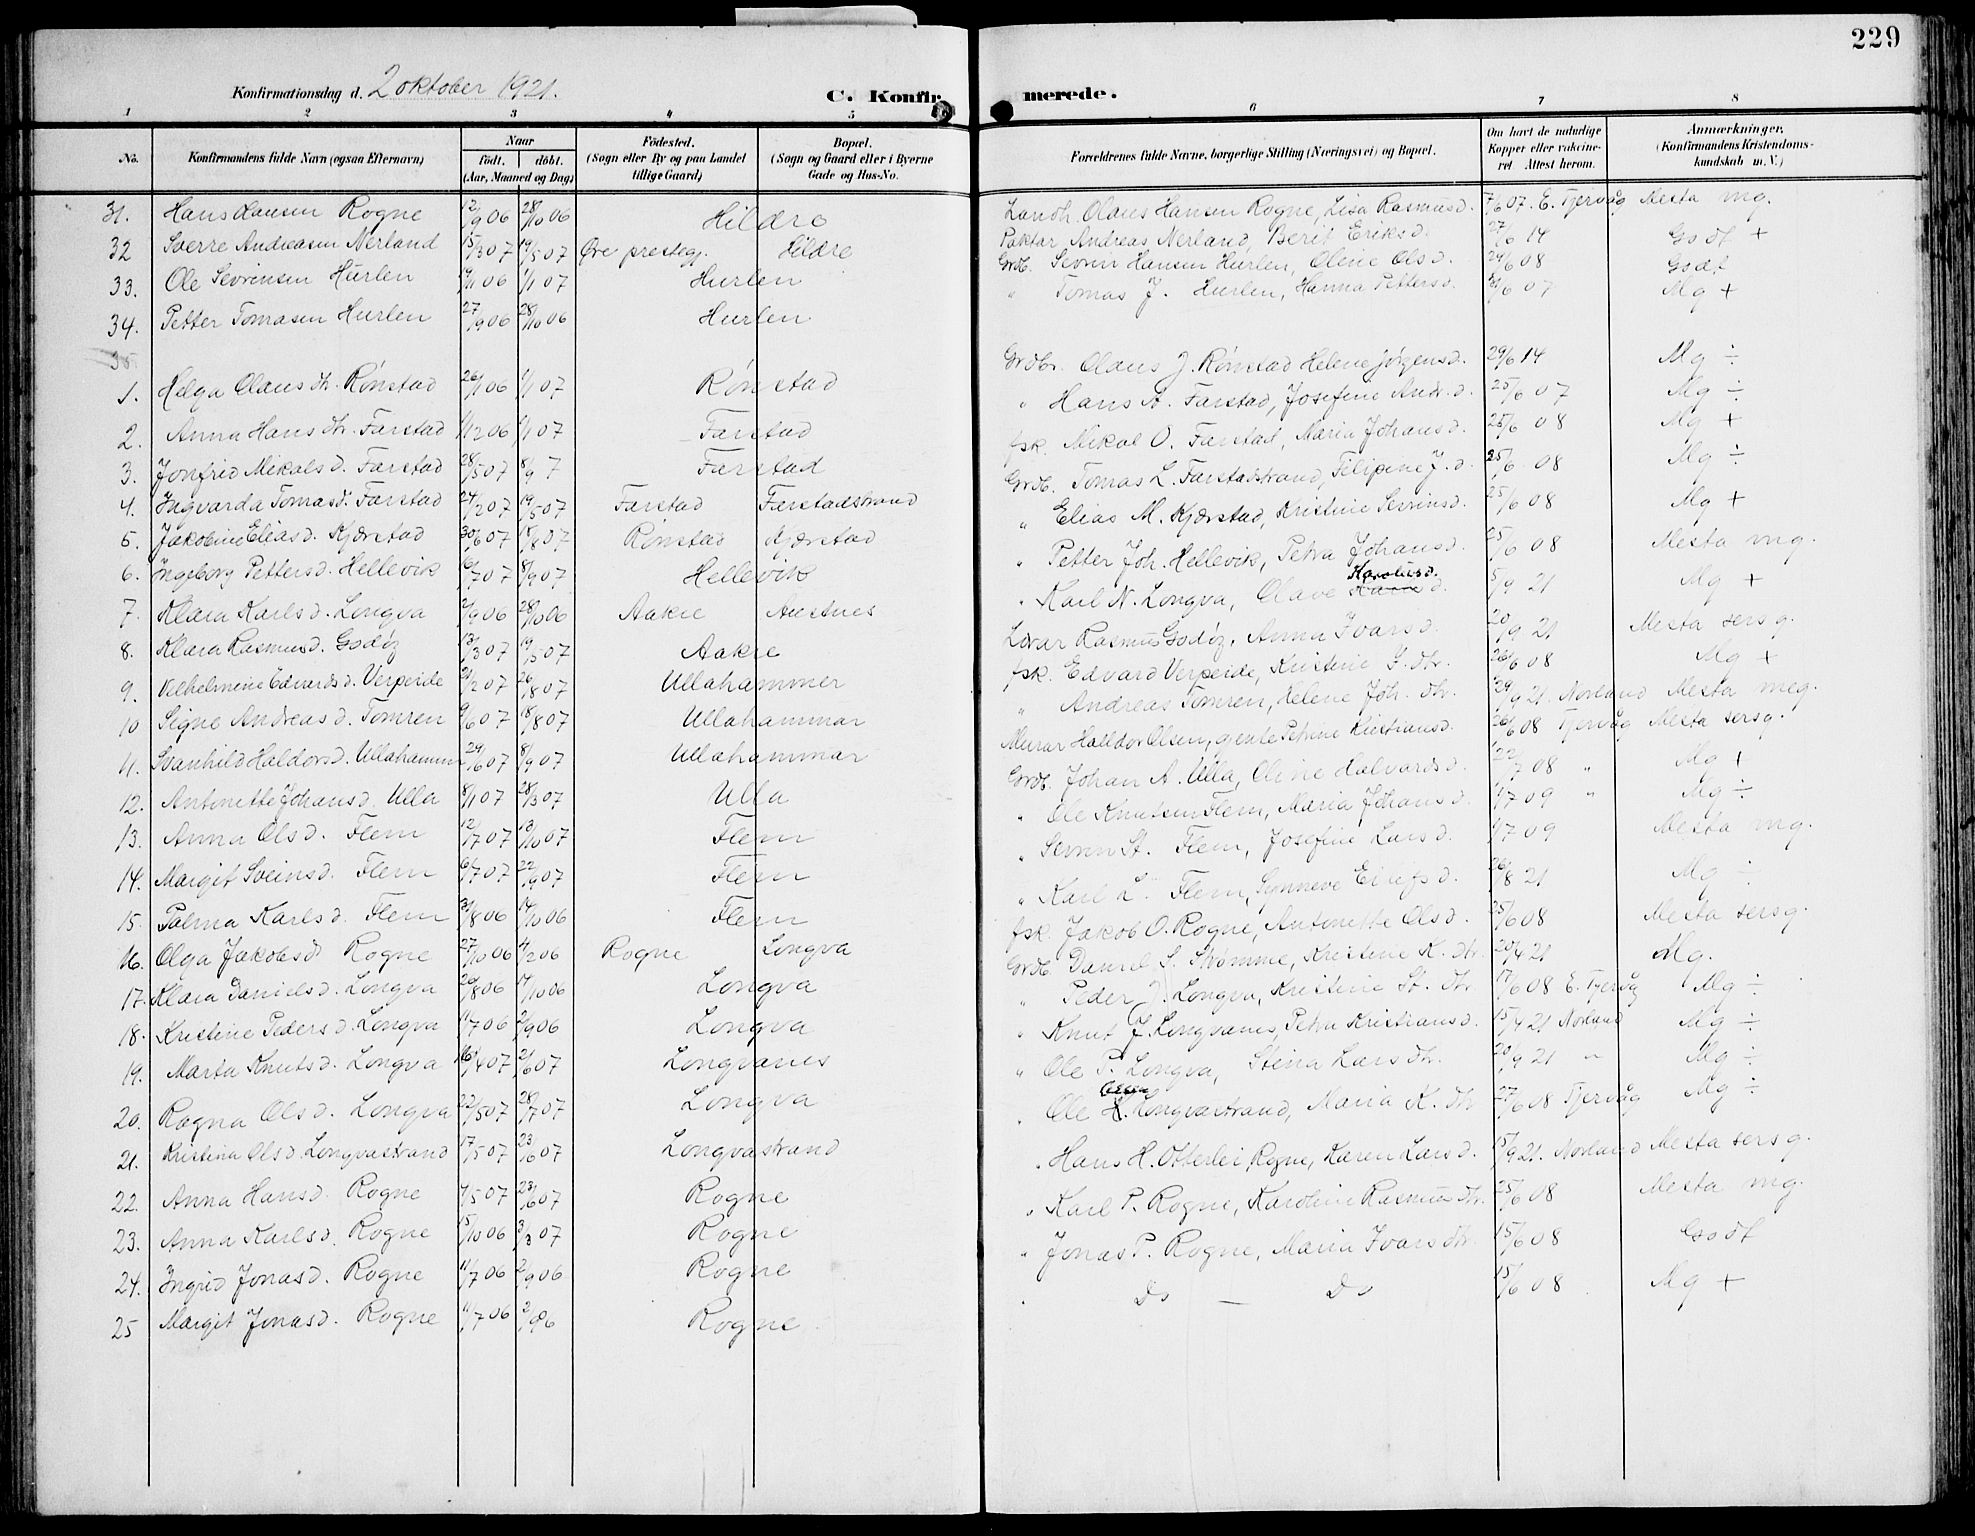 229
Konfirmationsdag d. 2 oktober 1921.
C. Konfir merede.
1 2 3 4 5 6 7 8
No. Konfirmandens fulde Navn (ogsaa Efternavn) Naar født. døbt. (Aar, Maaned og Dag) Fødested. (Sogn eller By og paa Landet tillige Gaard) Bopæl. (Sogn og Gaard eller i Byerne Gade og Hus-No. Forældrenes fulde Navne, borgerlige Stilling (Næringsvei) og Bopæl. Om havt de naturlige Kopper eller vaccineret. Attest herom. Anmærkninger. (Konfirmandens Kristendomskundskab m. V.)
31. Hans Hansen Rogne 12/9 06 28/10 06 Hildre Landh. Olaus Hansen Rogne, Lisa Rasmusd. 7/6 07. E. Tjervåg Mesta mg.
32 Sverre Andreasen Nerland 15/3 07 19/5 07 Øre prestegj. Hildre Paktar Andreas Nerland, Berit Eriksd. 27/6 14 Godt +
33. Ole Sevrinsen Hurlen 19/11 06 1/1 07 Hurlen Grdb. Sevrin Hansen Hurlen, Oline Olsd. 24/6 08 Godt
34. Petter Tomasen Hurlen 27/9 06 28/10 06 Hurlen " Tomas J. Hurlen, Hanna Pettersd. /6 07 Mg +
35
1. Helga Olausdtr. Rønstad 26/11 06 1/1 07 Rønstad Grdbr. Olaus J. Rønstad Helene Jørgensd. 29/6 14 Mg ÷
2. Anna Hansdtr. Farstad 1/12 06 1/1 07 Farstad " Hans A. Farstad, Josefine Andr.d. 25/6 07 Mg ÷
3. Jonfrid Mikalsd. Farstad 28/5 07 8/9 7 Farstad fsk. Mikal O. Farstad, Maria Johansd. 25/6 08 Mg +
4. Ingvarda Tomasd. Farstad 24/2 07 19/5 07 Farstad Farstadstrand Grdb. Tomas L. Farstadstrand, Filipine J.d. 25/6 08 Mg ÷
5. Jakobine Eliasd. Kjærstad 30/6 07 18/8 07 Rønstad Kjærstad " Elias M. Kjærstad, Kristine Sevrinsd. 25/6 08 Mg +
6. Ingeborg Pettersd. Hellevik 16/7 07 8/9 07 Hellevik " Petter Joh. Hellevik, Petra Johansd. 25/6 08 Mesta mg.
7. Klara Karlsd. Longva 2/9 06 28/10 06 Aakre Austnes " Karl N. Longva, Olave Karolusd. 5/9 21 Mg +
8. Klara Rasmusd. Godøy 13/3 07 19/5 07 Aakre Lærar Rasmus Godøy, Anna Ivarsd. 20/9 21 Mesta sersg.
9. Vilhelmine Edvardsd. Verpeide 21/2 07 26/8 07 Ullahammer fsk. Edvard Verpeide, Kristine S. dtr. 26/6 08 Mg +
10 Signe Andreasd. Tomren 9/6 07 18/8 07 Ullahammar " Andreas Tomren, Helene Joh. dtr. 29/9 21. Norland Mesta meg.
11. Svanhild Haldorsd. Ullahammar 29/6 07 8/9 07 Ullahammar Murar Halldor Olsen, gjente Petrine Kristiansd. 26/6 08 Tjervåg Mesta sersg.
12. Antonette Johansd. Ulla 8/1 07 28/3 07 Ulla Grdb. Johan A. Ulla, Oline Halvardsd. 22/7 08 " Mg +
13. Anna Olsd. Flem 12/7 07 13/10 07 Flem " Ole Knutsen Flem, Maria Johansd. 1/7 09 " Mg ÷
14. Margit Sveinsd. Flem 6/7 07 22/9 07 Flem " Sevrin St. Flem, Josefine Larsd. 1/7 09 Mesta mg.
15. Palma Karlsd. Flem 31/8 06 14/10 06 Flem " Karl L. Flem, Synneve Eilefsd. 26/8 21 Mg ÷
16. Olga Jakobsd. Rogne 27/10 06 4/2 06 Rogne Longva fsk. Jakob O. Rogne, Antonette Olsd. 25/6 08 Mesta sersg.
17. Klara Danielsd. Longva 26/8 06 14/10 06 Longva Grdb. Daniel S. Strømme, Kristine K. dtr. 20/4 21 Mg.
18. Kristine Pedersd. Longva 11/7 06 2/9 06 Longva " Peder J. Longva, Kristine St. dtr. 17/6 08 E. Tjervåg Mg ÷
19. Marta Knutsd. Longva 16/4 07 21/6 07 Longvanes " Knut J. Longvanes, Petra Kristiansd. 15/4 21 Norland Mg ÷
20. Ragna Olsd. Longva 22/5 07 28/7 07 Longva " Ole P. Longva, Stina Larsdtr. 20/9 21 " Mg ÷
21. Kristina Olsd. Longvastrand 17/5 07 23/6 07 Longvastrand " Ole Longvastrand, Maria K. dtr 27/6 08 Tjervåg Mg ÷
22. Anna Hansd. Rogne 4/5 07 23/6 07 Rogne " Hans H. Otterlei, Rogne, Karen Larsd. 15/9 21. Norland Mesta sersg.
23. Anna Karlsd. Rogne 15/10 06 3/3 07 Rogne " Karl P. Rogne, Karoline Rasmusdtr. 25/6 08 Mesta mg.
24. Ingrid Jonasd. Rogne 11/7 06 2/9 06 Rogne " Jonas P. Rogne, Maria Ivarsdtr. 15/6 08 Godt
25 Margit Jonasd. Rogne 11/7 06 2/9 06 Rogne. " Do — Do 15/6 08 Mg +